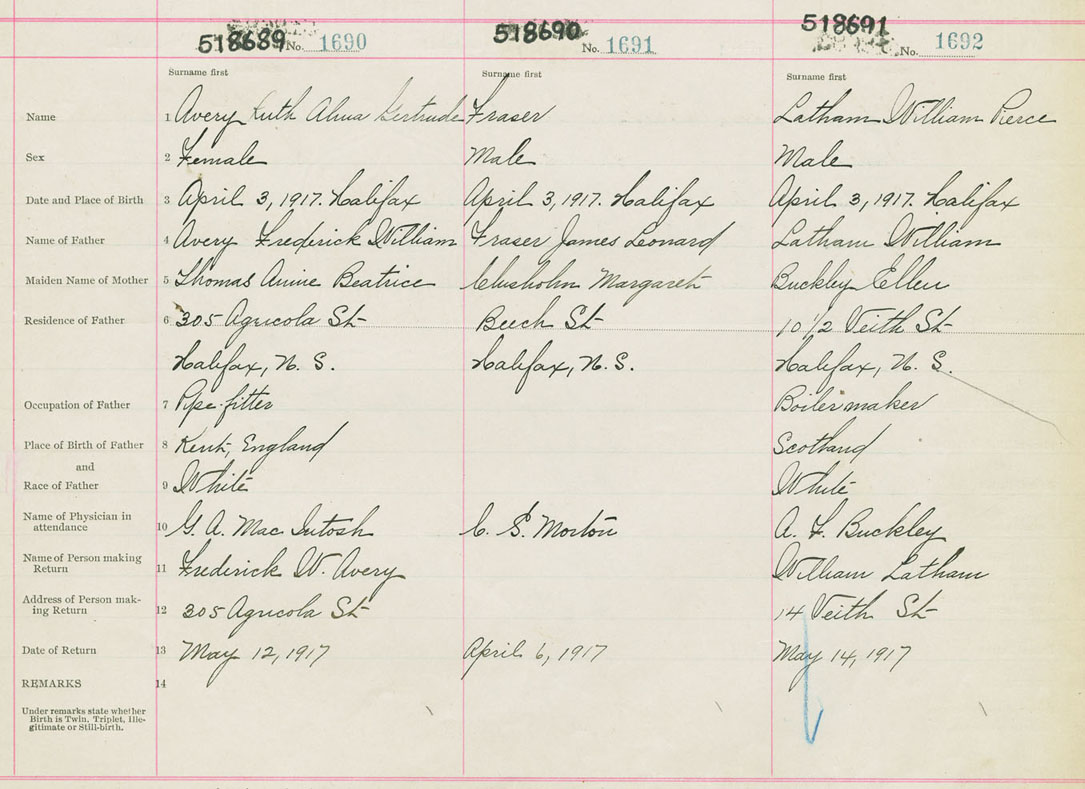 518689 No. 1690 518690 No. 1691 518691 No. 1692
Surname first Surname first Surname first
Name 1 Avery Ruth Alma Gertrude Fraser Latham William Pierce
Sex 2 Female Male Male
Date and Place of Birth 3 April 3, 1917. Halifax April 3, 1917. Halifax April 3, 1917. Halifax
Name of Father 4 Avery Frederick William Fraser James Leonard Latham William
Maiden Name of Mother 5 Thomas Annie Beatrice Chisholm Margaret Buckley Ellen
Residence of Father 6 305 Agricola St Beech St 10 1/2 Veith St
Halifax, N. S. Halifax, N. S. Halifax, N. S.
Occupation of Father 7 Pipe-fitter Boilermaker
Place of Birth of Father 8 Kent, England Scotland
and
Race of Father 9 White White
Name of Physician in
attendance 10 G. A. Mac Intosh C. S. Morton A. F. Buckley
Name of Person making
Return 11 Frederick W. Avery William Latham
Address of Person mak-
ing Return 12 305 Agricola St 14 Veith St
Date of Return 13 May 12, 1917 April 6, 1917 May 14, 1917
REMARKS 14
Under remarks state whether
Birth is Twin, Triplet, Ille-
gitimate or Still-birth.